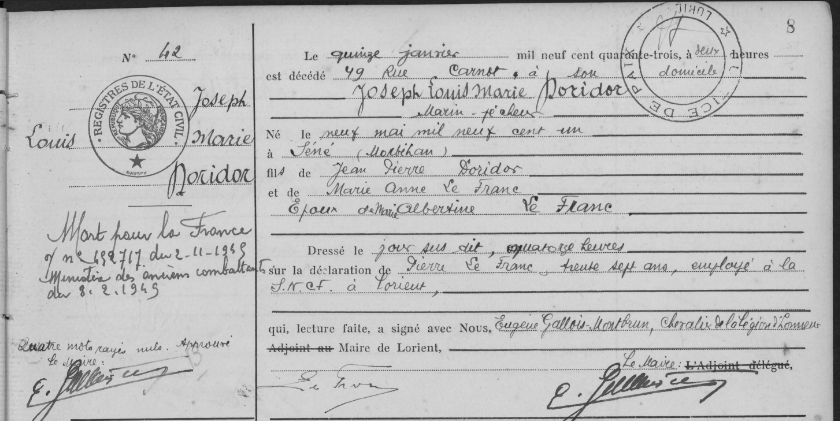 8
N° 42
Joseph
Louis Marie
Doridor
REGISTRES DE L'ÉTAT CIVIL
Mort pour la France
du 2-11-1945
Ministère des anciens combattants
du 8.2.1949
Quatre mots rayés nuls. Approuvé
Le Maire:
Le quinze janvier mil neuf cent quarante-trois, à deux heures
est décédé 49 Rue Carnot, à son domicile
Joseph Louis Marie Doridor
Marin-pêcheur
Né le neuf mai mil neuf cent un
à Séné (Morbihan)
fils de Jean Pierre Doridor
et de Marie Anne Le Franc
Époux de Marie Albertine Le Franc
Dressé le jour sus dit, quatorze heures
sur la déclaration de Pierre Le Franc, trente sept ans, employé à la
S.N.C.F. à Lorient,
qui, lecture faite, a signé avec Nous, Eugène Gallois-Montbrun, Chevalier de la Légion d'Honneur
Adjoint au Maire de Lorient,
Le Maire: L'Adjoint délégué,
Le Franc